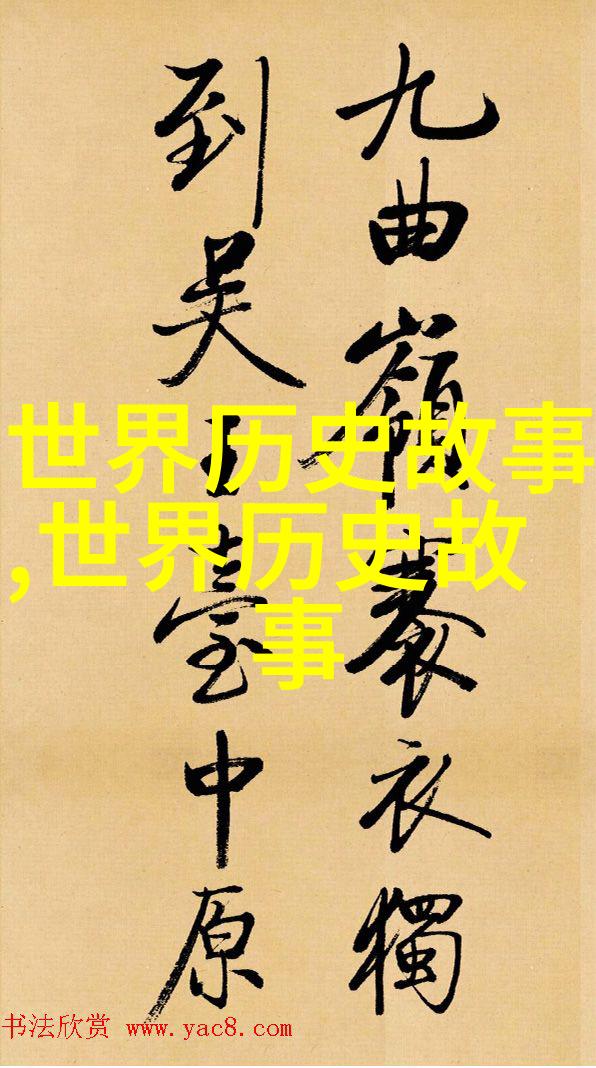 九曲嶺衣獨
到吳王臺中原
世界历史故事
,世界历史故
事
书法欣赏 www.yac8.com